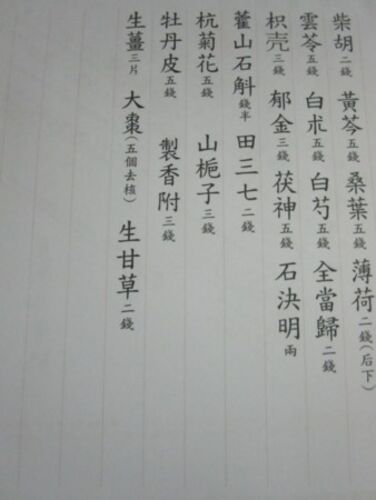 柴胡二錢 黃芩五錢 桑葉五錢 薄荷二錢(后下)
雲苓五錢 白朮五錢 白芍五錢 全當歸二錢
枳壳三錢 郁金三錢 茯神五錢 石決明兩
藿山石斛錢半 田三七二錢
杭菊花五錢 山梔子三錢
牡丹皮五錢 製香附三錢
生薑三片 大棗(五個去核) 生甘草二錢